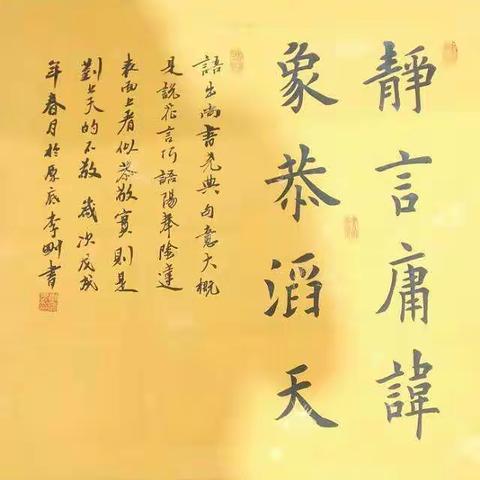 靜言庸諱
象恭滔天
語出尚書堯典句意大概
是說花言巧語陽奉陰違
表面上看似恭敬實則是
對上天的不敬 歲次戊戌
年春月於原底李㽛書